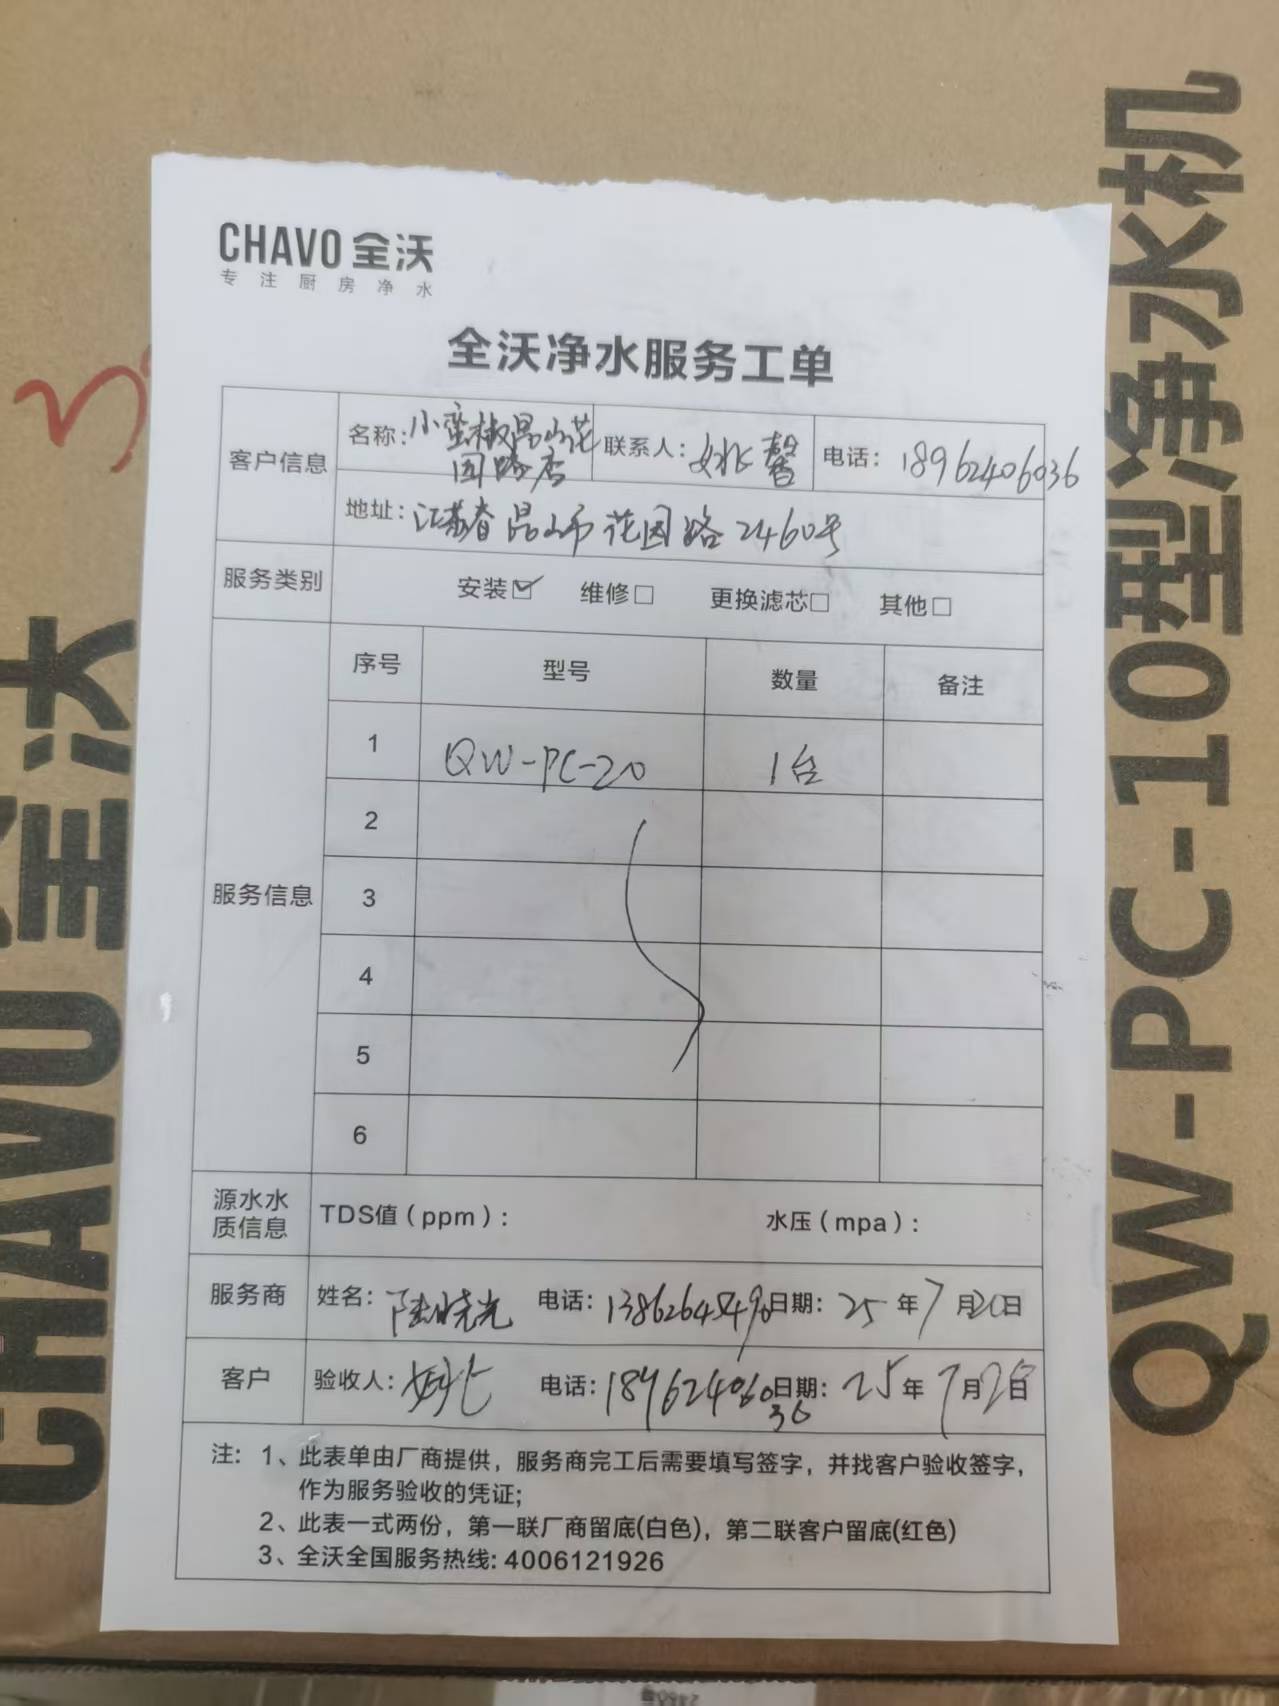 CHAVO 全沃
专注厨房净水
全沃净水服务工单
客户信息
名称：小蛮椒昆山花园路店
联系人：姚馨
电话：18962406036
地址：江苏省昆山市花园路2460号
服务类别
安装☑ 维修□ 更换滤芯□ 其他□
服务信息
序号 型号 数量 备注
1 QW-PC-20 1台
2
3
4
5
6
源水水质信息
TDS值（ppm）：
水压（mpa）：
服务商 姓名：陆晓光 电话：13862645490 日期：25年7月20日
客户 验收人：姚 电话：18962406036 日期：25年7月2日
注：1、此表单由厂商提供，服务商完工后需要填写签字，并找客户验收签字，
作为服务验收的凭证；
2、此表一式两份，第一联厂商留底(白色)，第二联客户留底(红色)
3、全沃全国服务热线: 4006121926
CHAVO全沃
QW-PC-10型净水机